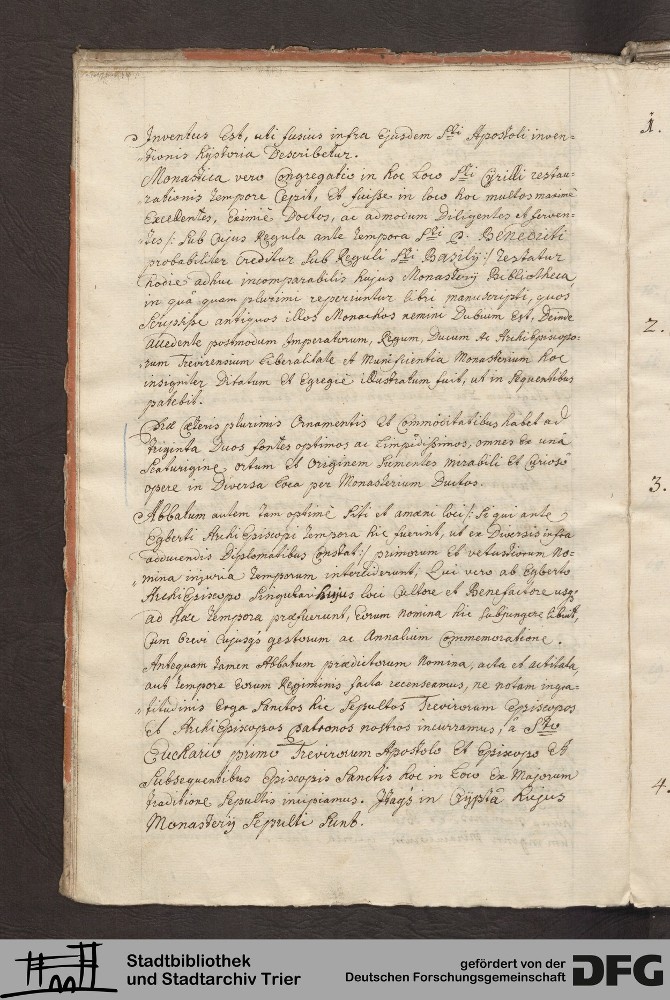 Inventus Est, uti fusius infra Ejusdem Sti Apostoli inven=
=tionis hystoria Describetur.
Monastica vero Congregatio in hoc Loco Sti Cyrilli restau=
=rationis tempore Cepit, Et fuisse in loco hoc multos maximè
Excellentes, Eximiè Doctos, ac admodum Diligentes et ferven=
=tes /: sub Cujus Regula ante tempora Sti P. Benedicti
probabiliter Creditur sub Reguli Sti Basilij :/ testatur
hodie adhuc incomparabilis hujus Monasterij Bibliotheca,
in quâ quam plurimi reperiuntur libri manuscripti, quos
scripsisse antiquos illos Monachos nemini Dubium Est, Deinde
accedente postmodum Imperatorum, Regum, Ducum Ac ArchiEpiscopo=
=rum Trevirensium liberalitate et Munificentia Monasterium hoc
insigniter Ditatum Et Egregiè illustratum fuit, ut in sequentibus
patebit.
Præ Cæteris plurimis Ornamentis Et Commoditatibus habet ad
triginta Duos fontes optimos ac limpidissimos, omnes Ex unâ
scaturigine, ortum Et Originem sumentes mirabili Et Curioso
opere in Diversa loca per Monasterium Ductos.
Abbatum autem tam optimè siti et amæni loci /: si qui ante
Egberti ArchiEpiscopi tempora hic fuerint, ut ex Diversis infra
adducendis Diplomatibus Constat :/ primorum Et vetustiorum No=
=mina injuria temporum interciderunt, Qui vero ab Egberto
ArchiEpiscopo singulari hujus loci Cultore et Benefactore usq3
ad hæc tempora præfuerunt, Eorum nomina hic subjungere libuit,
Cum brevi Cujusq3 gestorum ac Annalium Commemoratione.
Antequam tamen Abbatum prædictorum Nomina, acta et actitata,
aut tempora Eorum Regiminis facta recenseamus, ne notam ingra=
=titudinis Erga Sanctos hic sepultos Trevirorum Episcopos
Et ArchiEpiscopos patronos nostros incurramus, à Sto
Euchario primo Trevirorum Apostolo Et Episcopo Et
subsequentibus Episcopis Sanctis hoc in Loco Ex Majorum
traditione sepultis incipiamus. Itaq3 in Cryptâ hujus
Monasterij sepulti sunt.
1.
2.
3.
4.
Stadtbibliothek
und Stadtarchiv Trier
gefördert von der
Deutschen Forschungsgemeinschaft
DFG